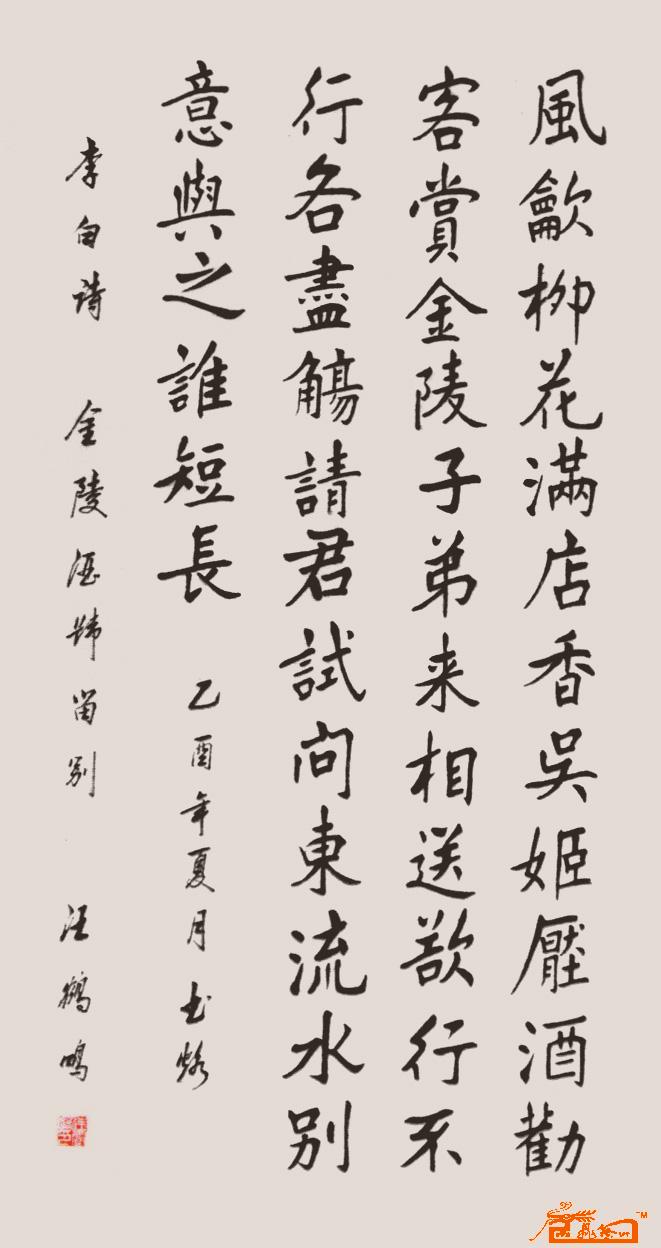 風歈柳花滿店香吳姬壓酒勸
客賞金陵子弟来相送欲行不
行各盡觴請君試问東流水别
意與之誰短長
乙酉年夏月书
李白诗 金陵酒肆留别 汪鹤鸣